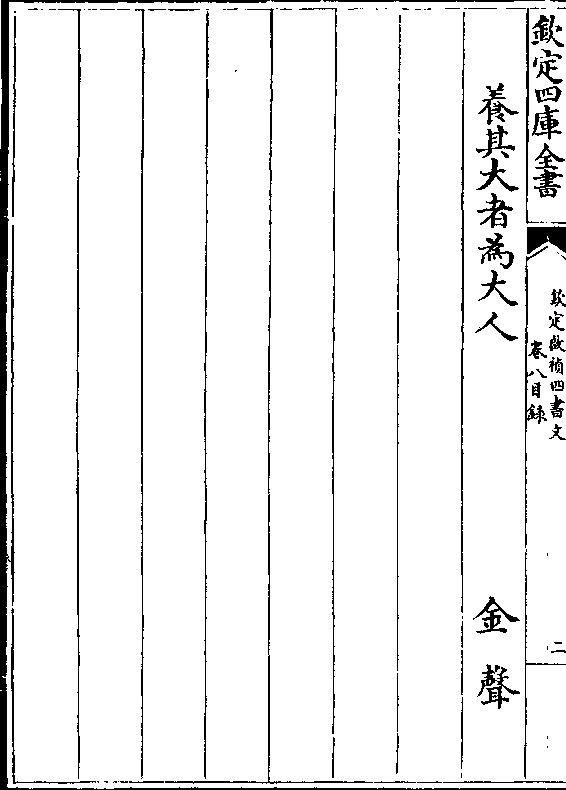 欽定四庫全書
欽定啟禎四書文
卷八目録
二
養其大者為大人
金聲